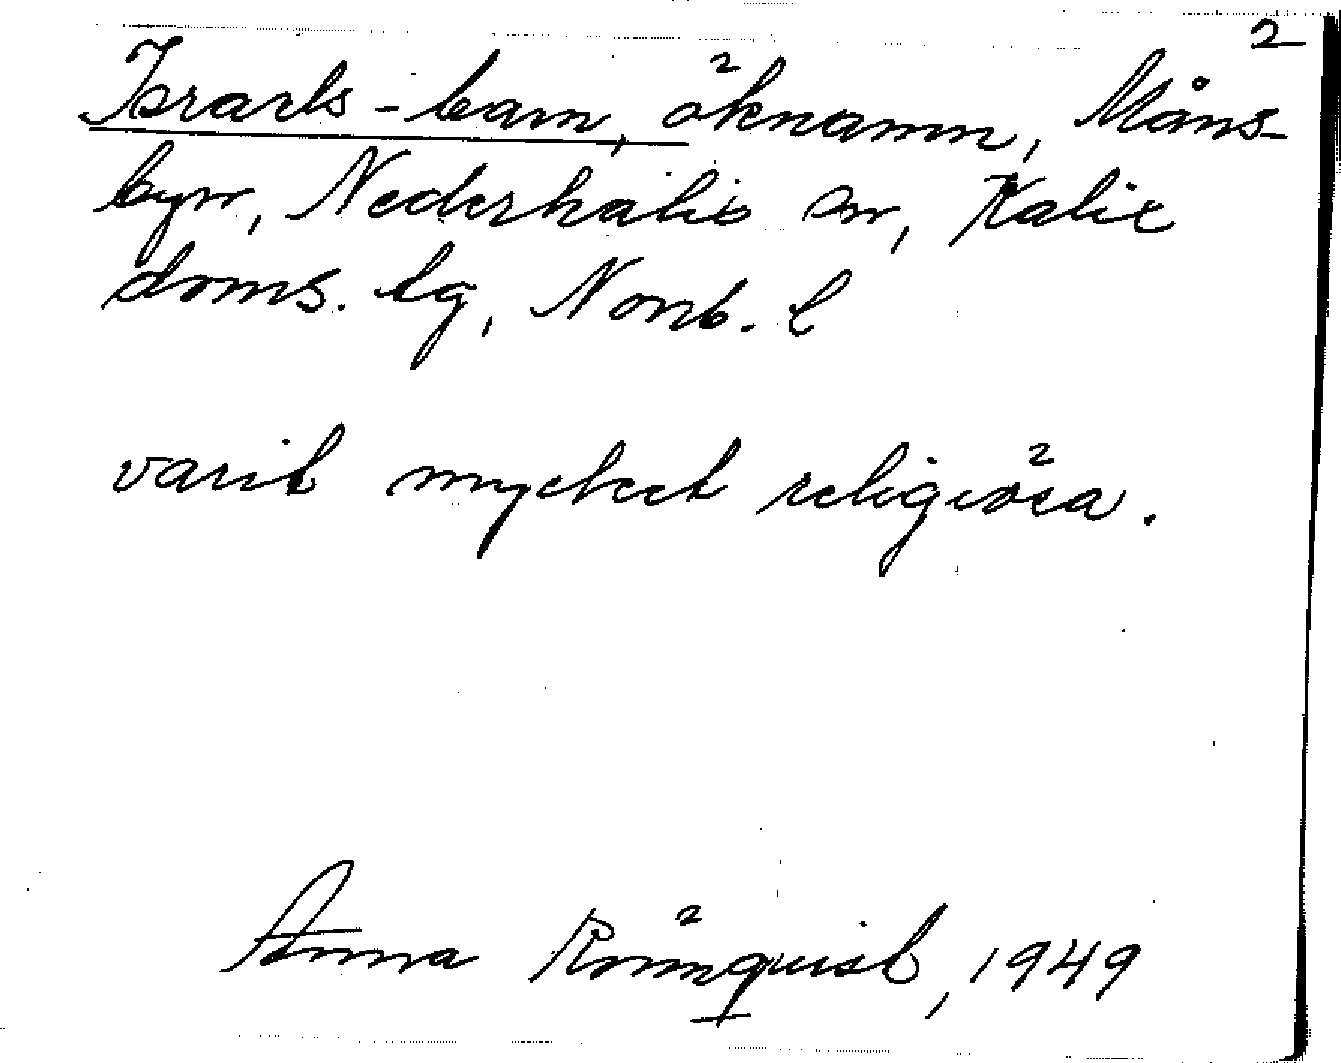 2
Israels-barn, öknamn, Måns-
byn, Nederkalix sn, Kalix
doms. lg, Norrb. l
varit mycket religiösa.
Anna Rönnquist, 1949